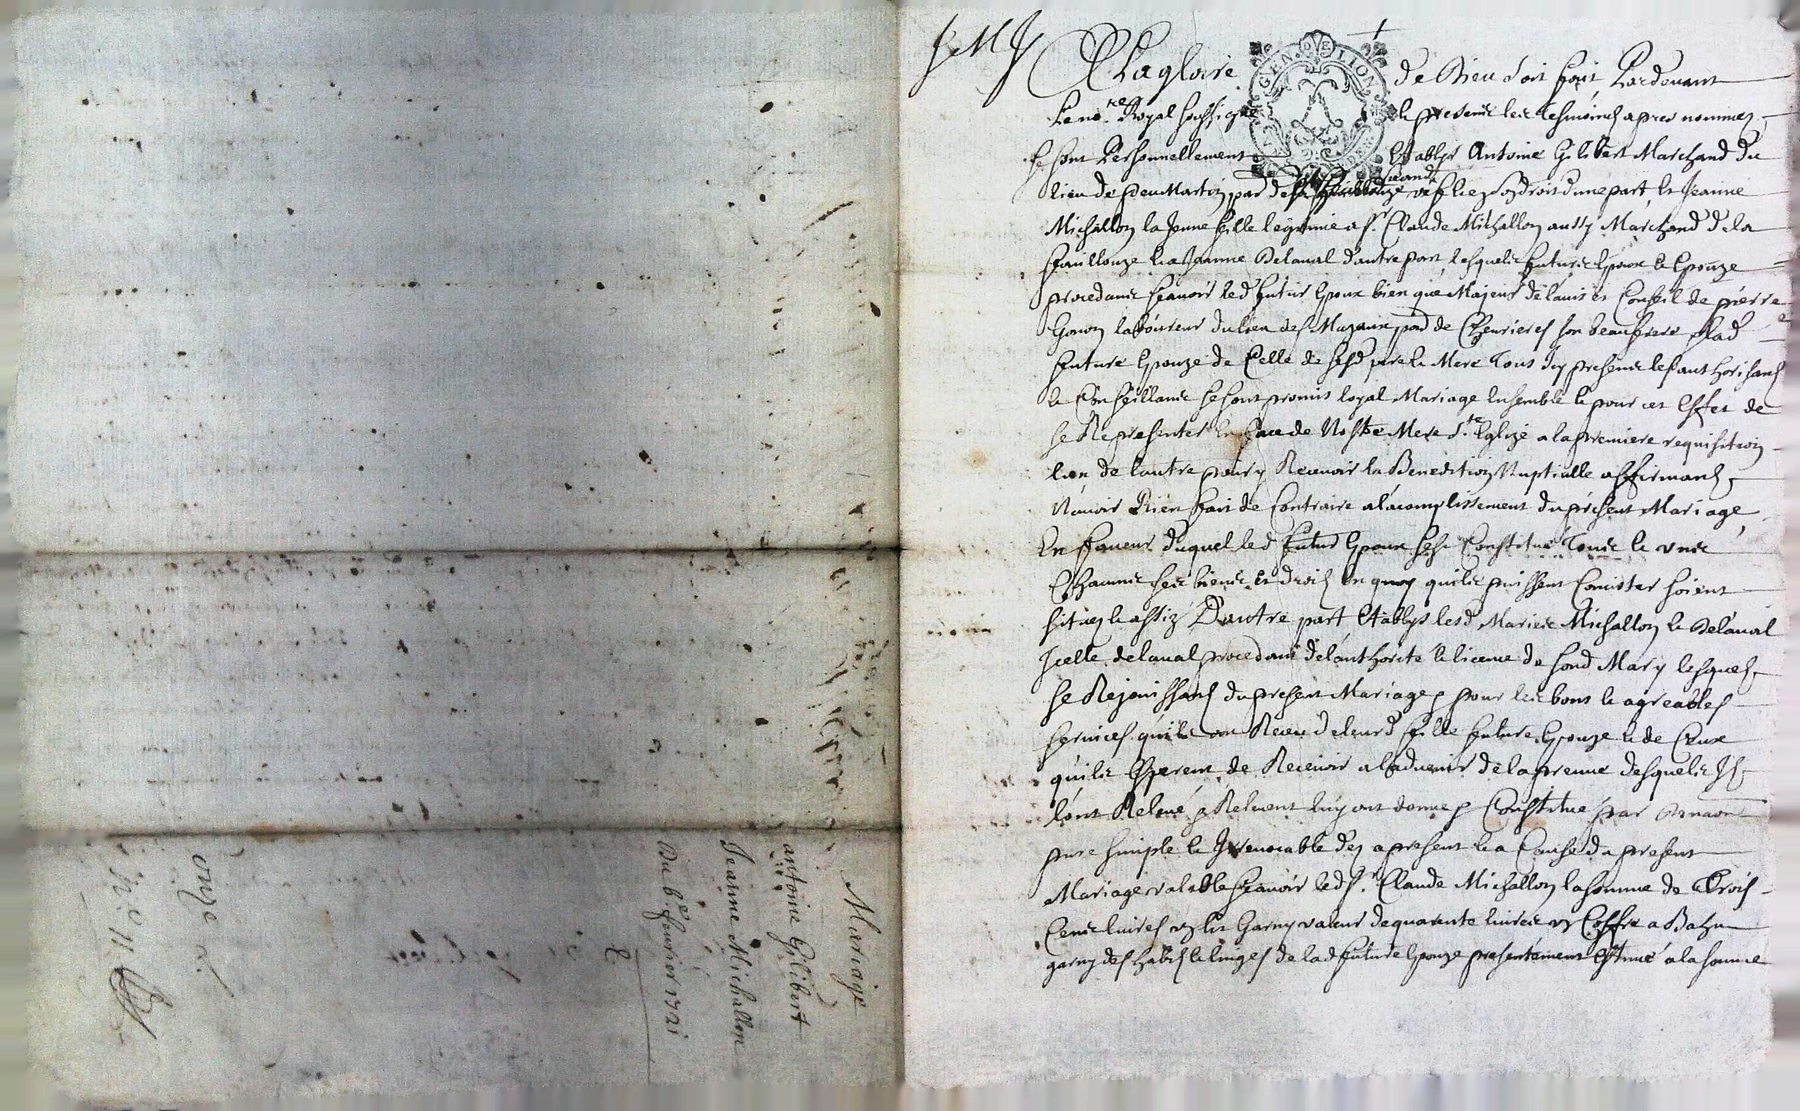 JMJ
A La gloire de Dieu soit fait, Pardevant
Le no.re Royal soussigné & presents les tesmoins apres nommez,
se sont Personnellement Establys Antoine Gilibert Marchand du
lieu de st Martin, par de & Jeanne
Michallon la Jeune fille legitime a sr. Claude Michallon aussy Marchand de la
fouillouze & a Jeanne Delaval d'autre part, lesquels futurs Epoux & Epouze
procedants scavoir led futur Epoux bien que Majeur de l'avis et Conseil de pierre
Gonon laboureur du lieu des Mazeaux, par de Chevrieres son beaufrere & lad
future Epouze de Celle de sesd pere & Mere tous icy presents les authorisants
& Conseillants se sont promis loyal Mariage Ensemble & pour cet Effet de
se Representer En face de Nostre Mere ste. Eglize a la premiere requisition
lun de l'autre pour y Recevoir la Benediction Nuptialle affirmants
N'avoir Rien fait de Contraire a l'acomplissement du present Mariage,
En faveur duquel led futur Epoux sest Constitué tous &
Chacuns ses biens et droits En quoy quils puissent Concister soient
sitüez & assiz D'autre part Etablys lesd Mariés Michallon & Delaval
Icelle delaval procedant de l'authorité & licence de sond Mary lesquels
se Rejouissants du present Mariage & pour les bons & agreables
services quils ont Receu de leurd fille future Epouze & de Ceux
quils Esperent de Recevoir a l'advenir de la preuve desquels Ils
l'ont Relevé & Relevent luy ont donné & Constitué par
pure simple & Irrevocable dez a present & a Cause du present
Mariage valable scavoir led sr. Claude Michallon la somme de Trois
Cents livres un lit Garny valeur de quarante livres un Coffre a Bahu
garny des habits & linges de lad future Epouze presentement Estimé a la somme
Mariage
antoine Gilibert
Jeanne Michallon
Du 6e fevrier 1721
onze
n.o 11